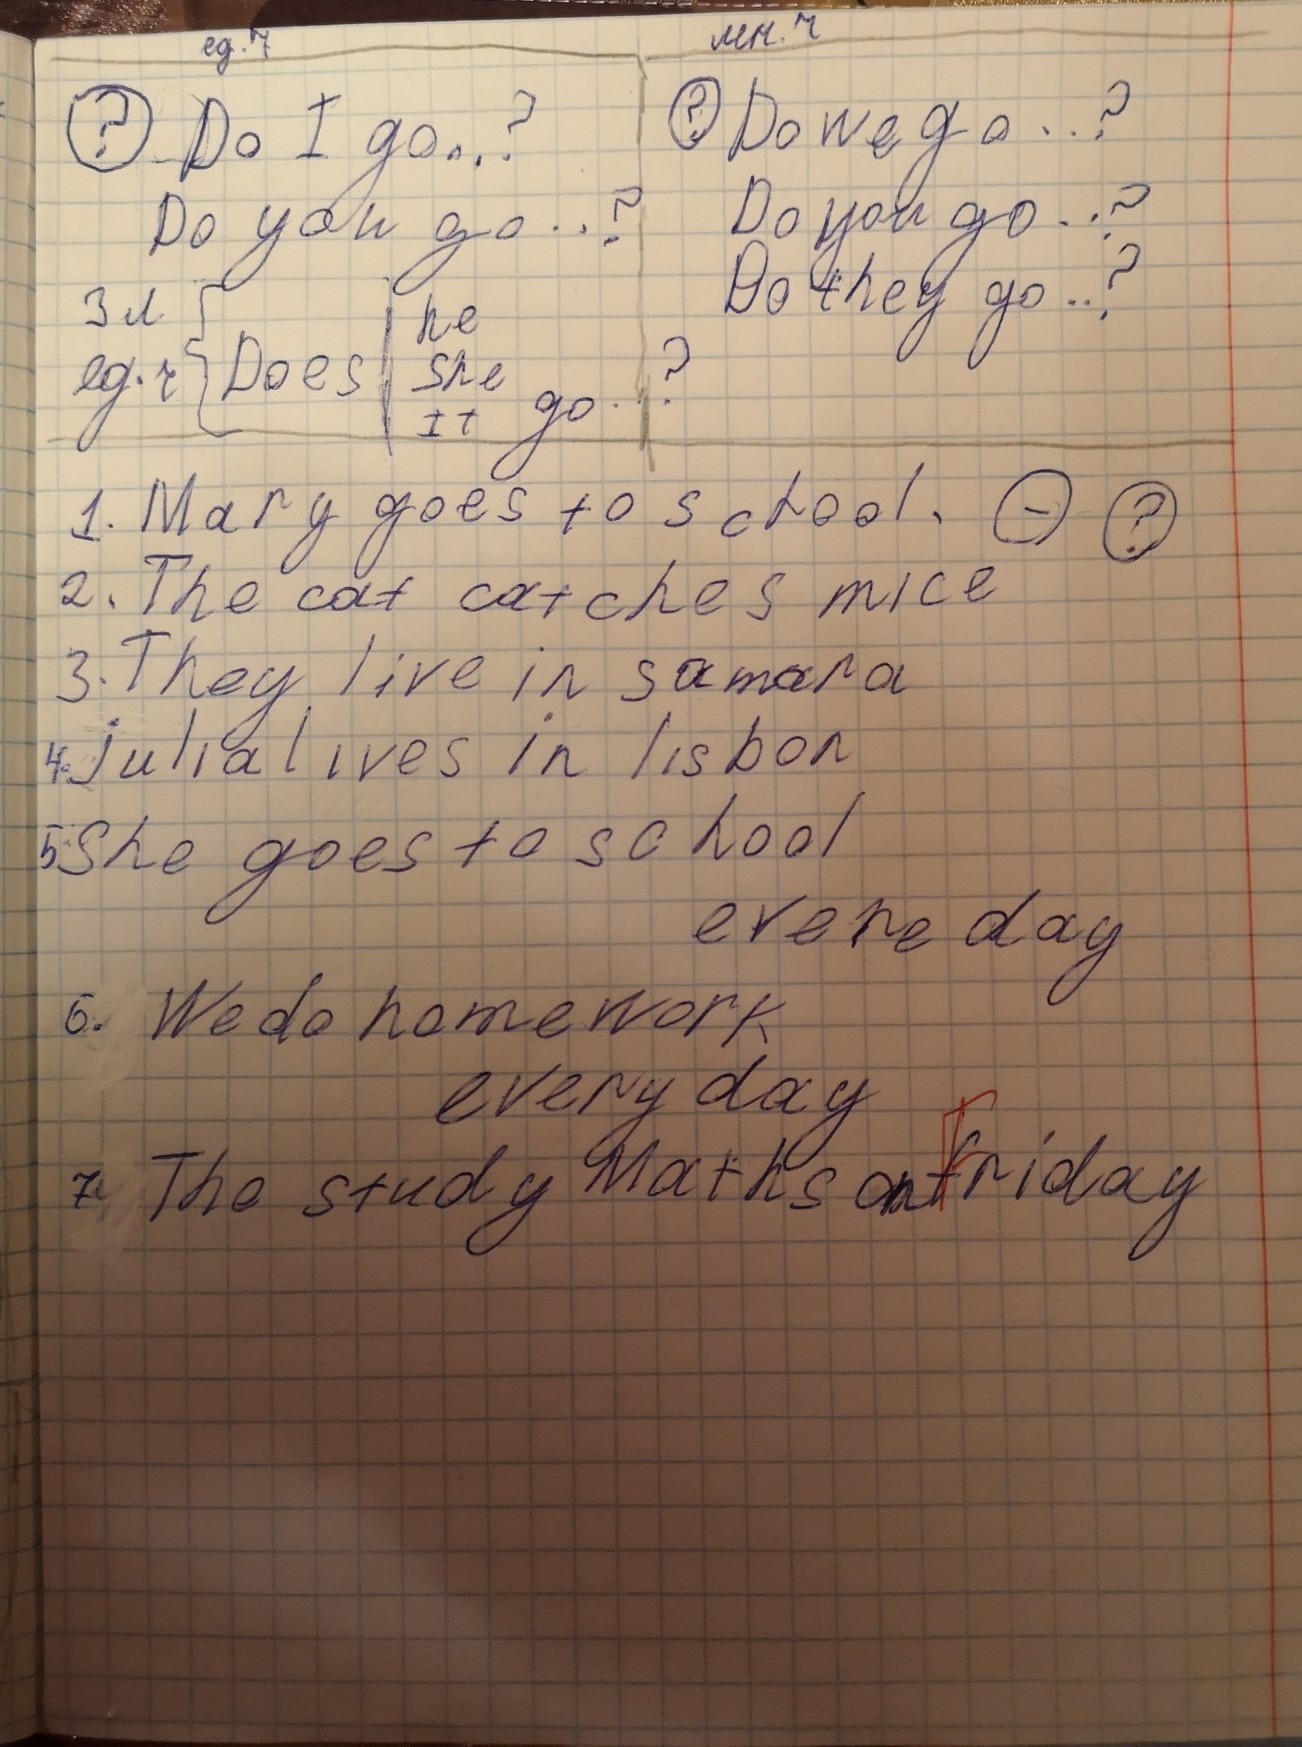 ед.ч
мн.ч
? Do I go...?
? Do we go...?
Do you go...?
Do you go...?
Do they go...?
3 л. ед.ч { Does | he
she
It go..?
1. Mary goes to school. - ?
2. The cat catches mice
3. They live in samara
4. julia lives in lisbon
5. She goes to school
evere day
6. We do homework
every day
7. The study Maths on Friday